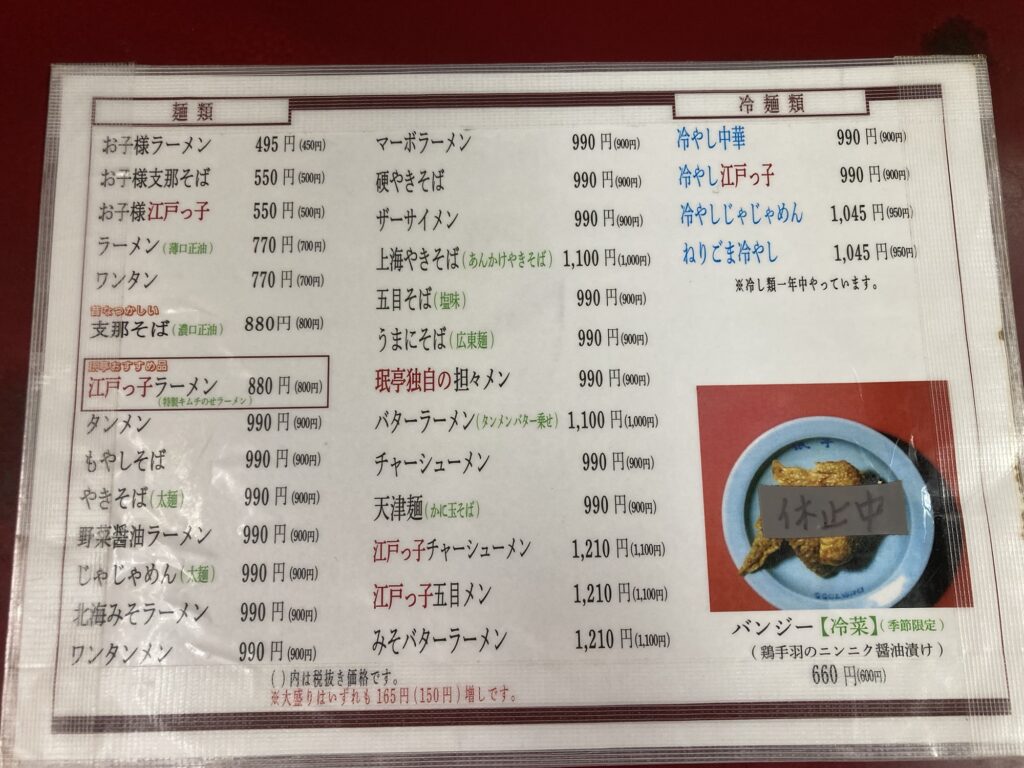 麺類
お子様ラーメン 495円(450円)
お子様支那そば 550円(500円)
お子様江戸っ子 550円(500円)
ラーメン(薄口正油) 770円(700円)
ワンタン 770円(700円)
昔なつかしい
支那そば(濃口正油) 880円(800円)
珉亭おすすめ品
江戸っ子ラーメン 880円(800円)
(特製キムチのせラーメン)
タンメン 990円(900円)
もやしそば 990円(900円)
やきそば(太麺) 990円(900円)
野菜醤油ラーメン 990円(900円)
じゃじゃめん(太麺) 990円(900円)
北海みそラーメン 990円(900円)
ワンタンメン 990円(900円)
マーボラーメン 990円(900円)
硬やきそば 990円(900円)
ザーサイメン 990円(900円)
上海やきそば(あんかけやきそば) 1,100円(1,000円)
五目そば(塩味) 990円(900円)
うまにそば(広東麺) 990円(900円)
珉亭独自の担々メン 990円(900円)
バターラーメン(タンメンバター乗せ) 1,100円(1,000円)
チャーシューメン 990円(900円)
天津麺(かに玉そば) 990円(900円)
江戸っ子チャーシューメン 1,210円(1,100円)
江戸っ子五目メン 1,210円(1,100円)
みそバターラーメン 1,210円(1,100円)
( )内は税抜き価格です。
※大盛りはいずれも165円(150円)増しです。
冷麺類
冷やし中華 990円(900円)
冷やし江戸っ子 990円(900円)
冷やしじゃじゃめん 1,045円(950円)
ねりごま冷やし 1,045円(950円)
※冷し類一年中やっています。
休止中
バンジー【冷菜】(季節限定)
(鶏手羽のニンニク醤油漬け)
660円(600円)